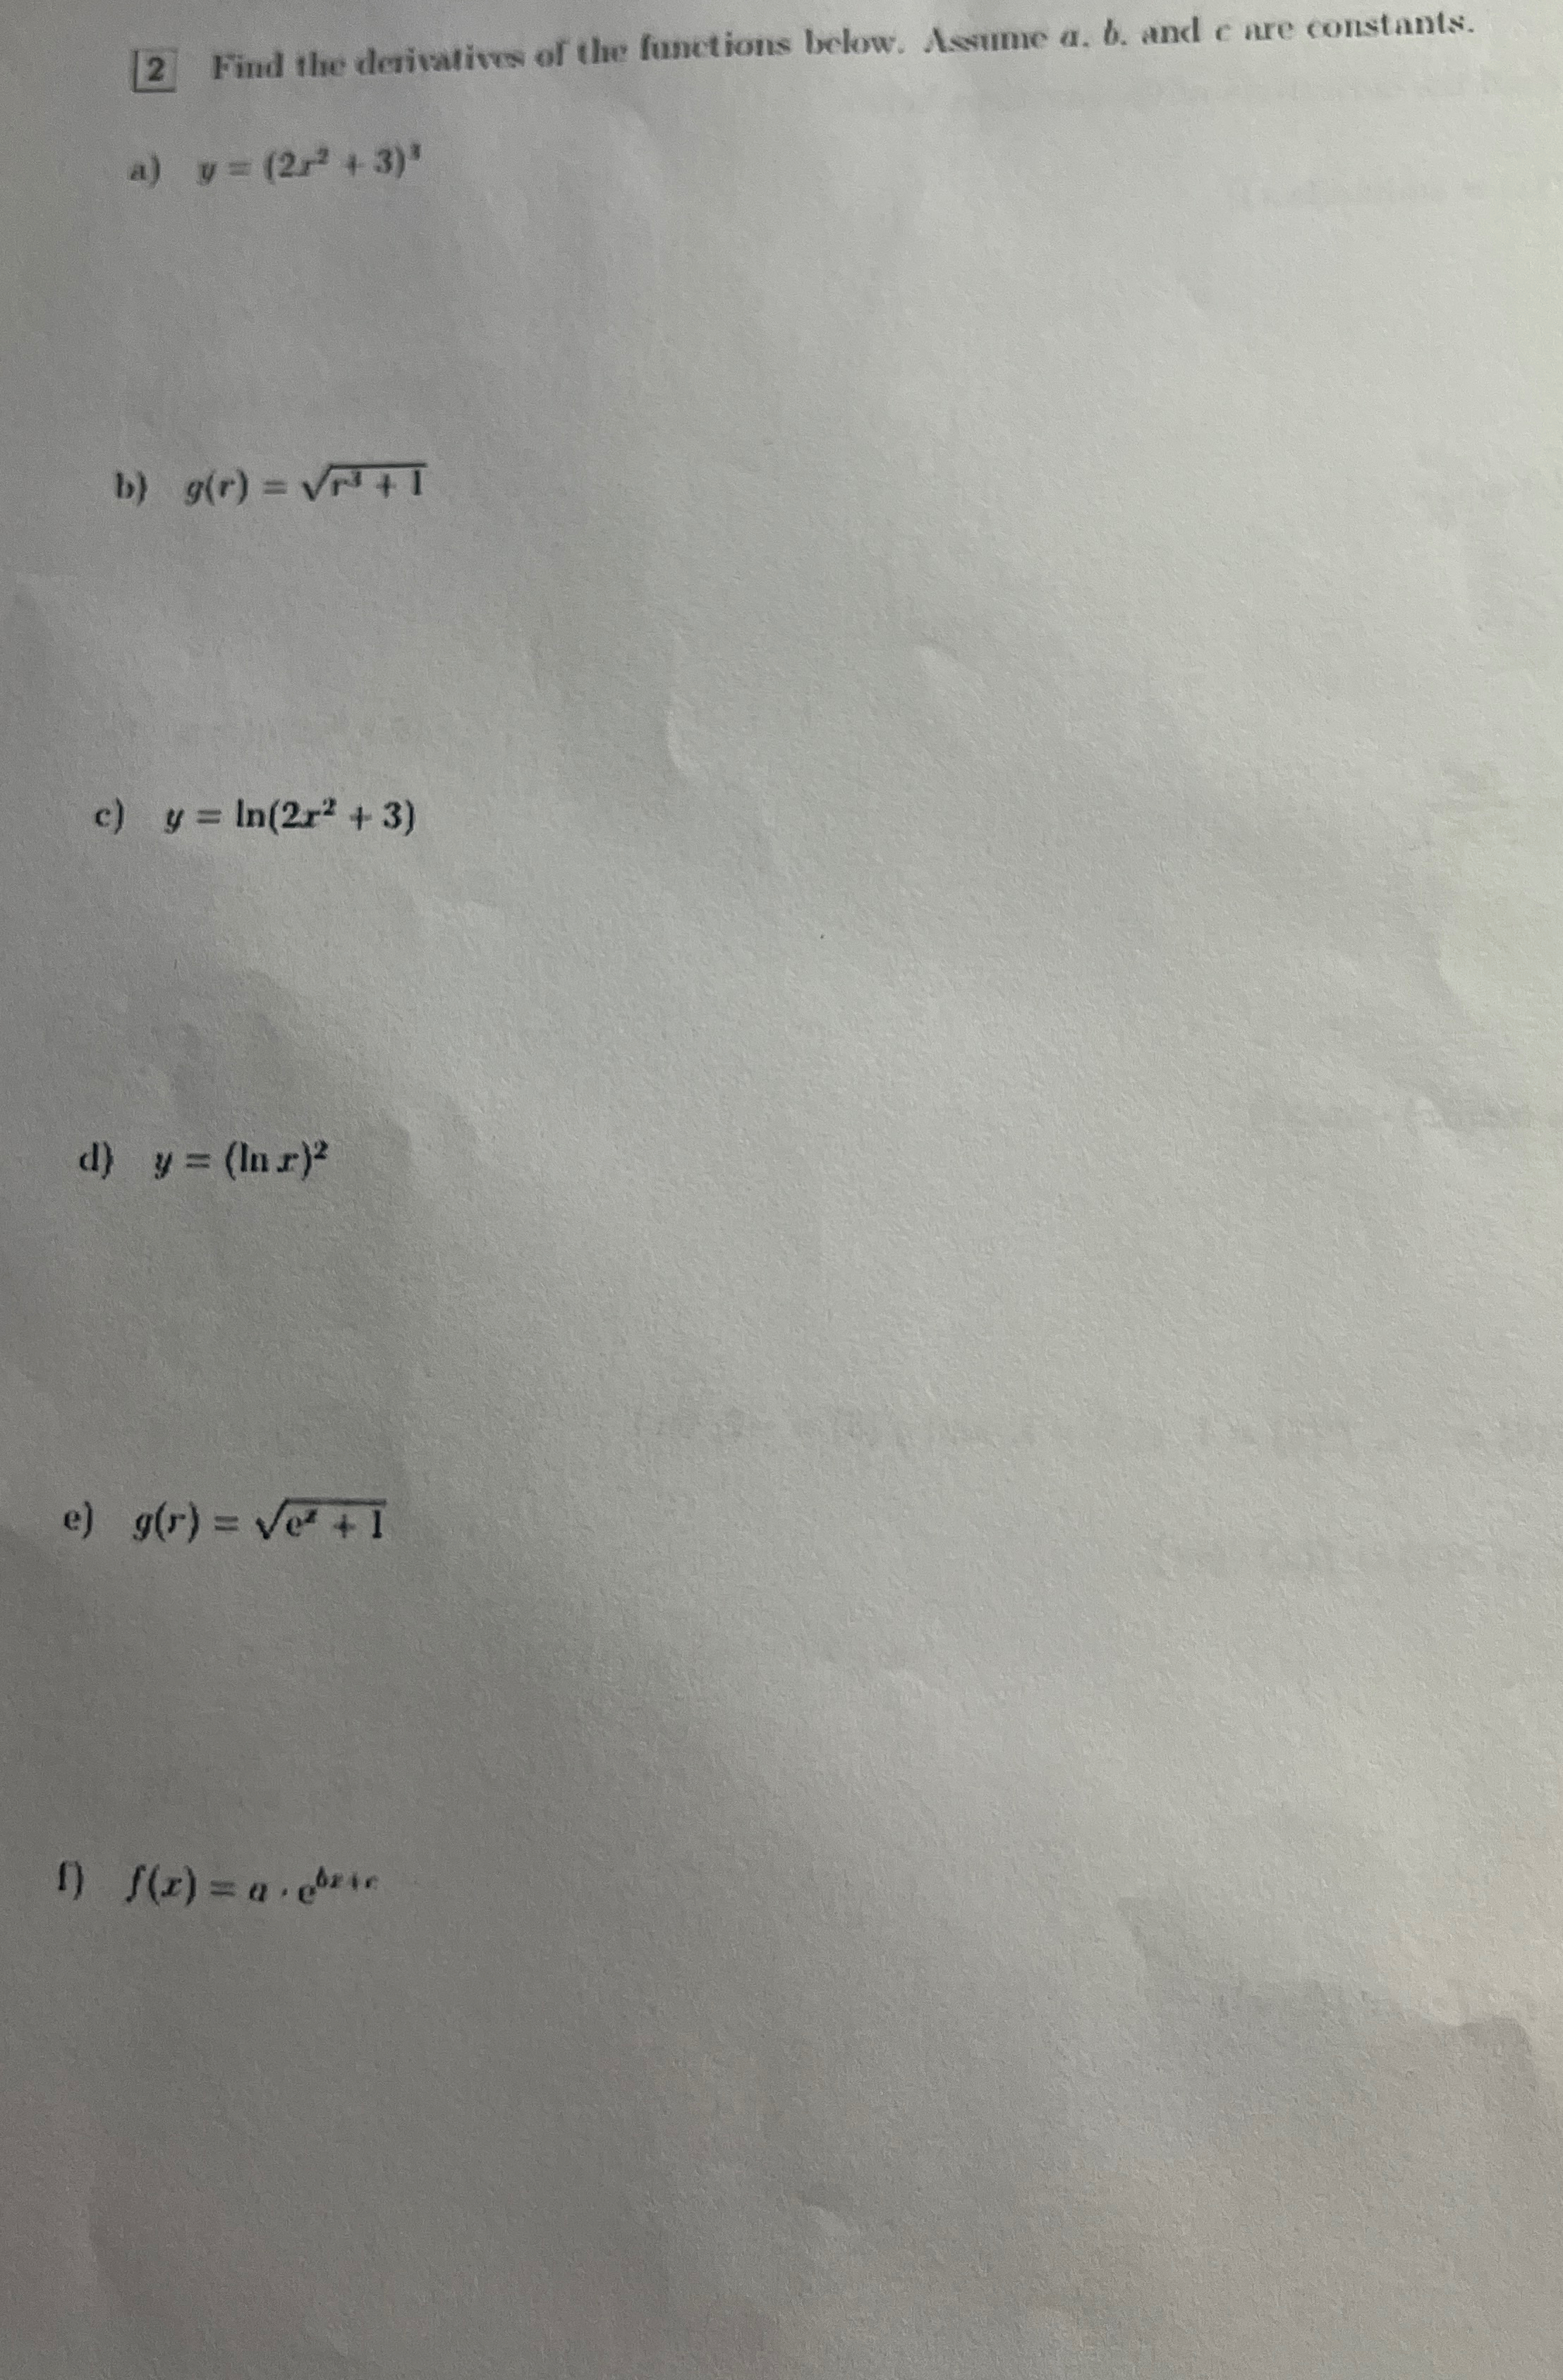 2 Find the derivatives of the functions below. Assume a, b, and c are constants.
a) y = (2x² + 3)³
b) g(r) = √(r³ + 1)
c) y = ln(2x² + 3)
d) y = (ln x)²
e) g(r) = √(eˣ + 1)
f) f(x) = a · e^{bx+c}